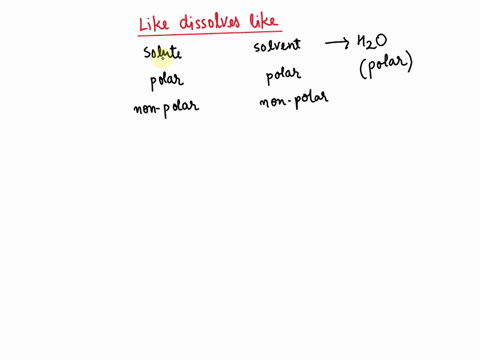 Like dissolves like
solute solvent → H2O
polar polar (polar)
non-polar non-polar